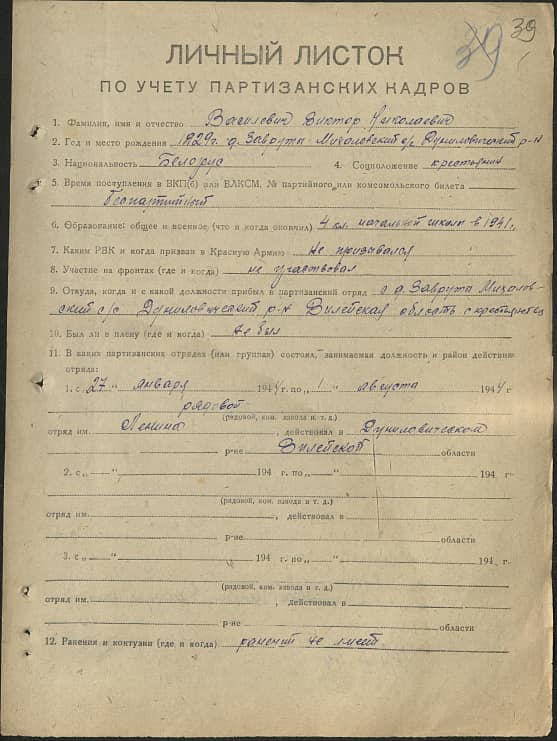 39 39
ЛИЧНЫЙ ЛИСТОК
ПО УЧЕТУ ПАРТИЗАНСКИХ КАДРОВ
1. Фамилия, имя и отчество Василевич Виктор Николаевич
2. Год и место рождения 1929г. д. Завруты Михаловский с/с Дуниловический р-н
3. Национальность Белорус 4. Соцположение крестьянин
5. Время поступления в ВКП(б) или ВЛКСМ, № партийного или комсомольского билета
беспартийный
6. Образование: общее и военное (что и когда окончил) 4 кл. начальной школы в 1941г.
7. Каким РВК и когда призван в Красную Армию Не призывался
8. Участие на фронтах (где и когда) не участвовал
9. Откуда, когда и с какой должности прибыл в партизанский отряд с д. Завруты Михалов-
ский с/с Дуниловический р-н Вилейская область с крестьянства
10. Был ли в плену (где и когда) Не был
11. В каких партизанских отрядах (или группах) состоял, занимаемая должность и район действия
отряда:
1. с „27" января 1944 г. по „1" августа 1944 г
рядовой
(рядовой, ком. взвода и т. д.)
отряд им. Ленина, действовал в Дуниловическом
р-не Вилейской области
2. с „ " 194 г. по „ " 194 г
(рядовой, ком. взвода и т. д.)
отряд им. , действовал в
р-не области
3. с „ " 194 г. по „ " 194 г
(рядовой, ком. взвода и т. д.)
отряд им. , действовал в
р-не области
12. Ранения и контузии (где и когда) ранений не имеет.